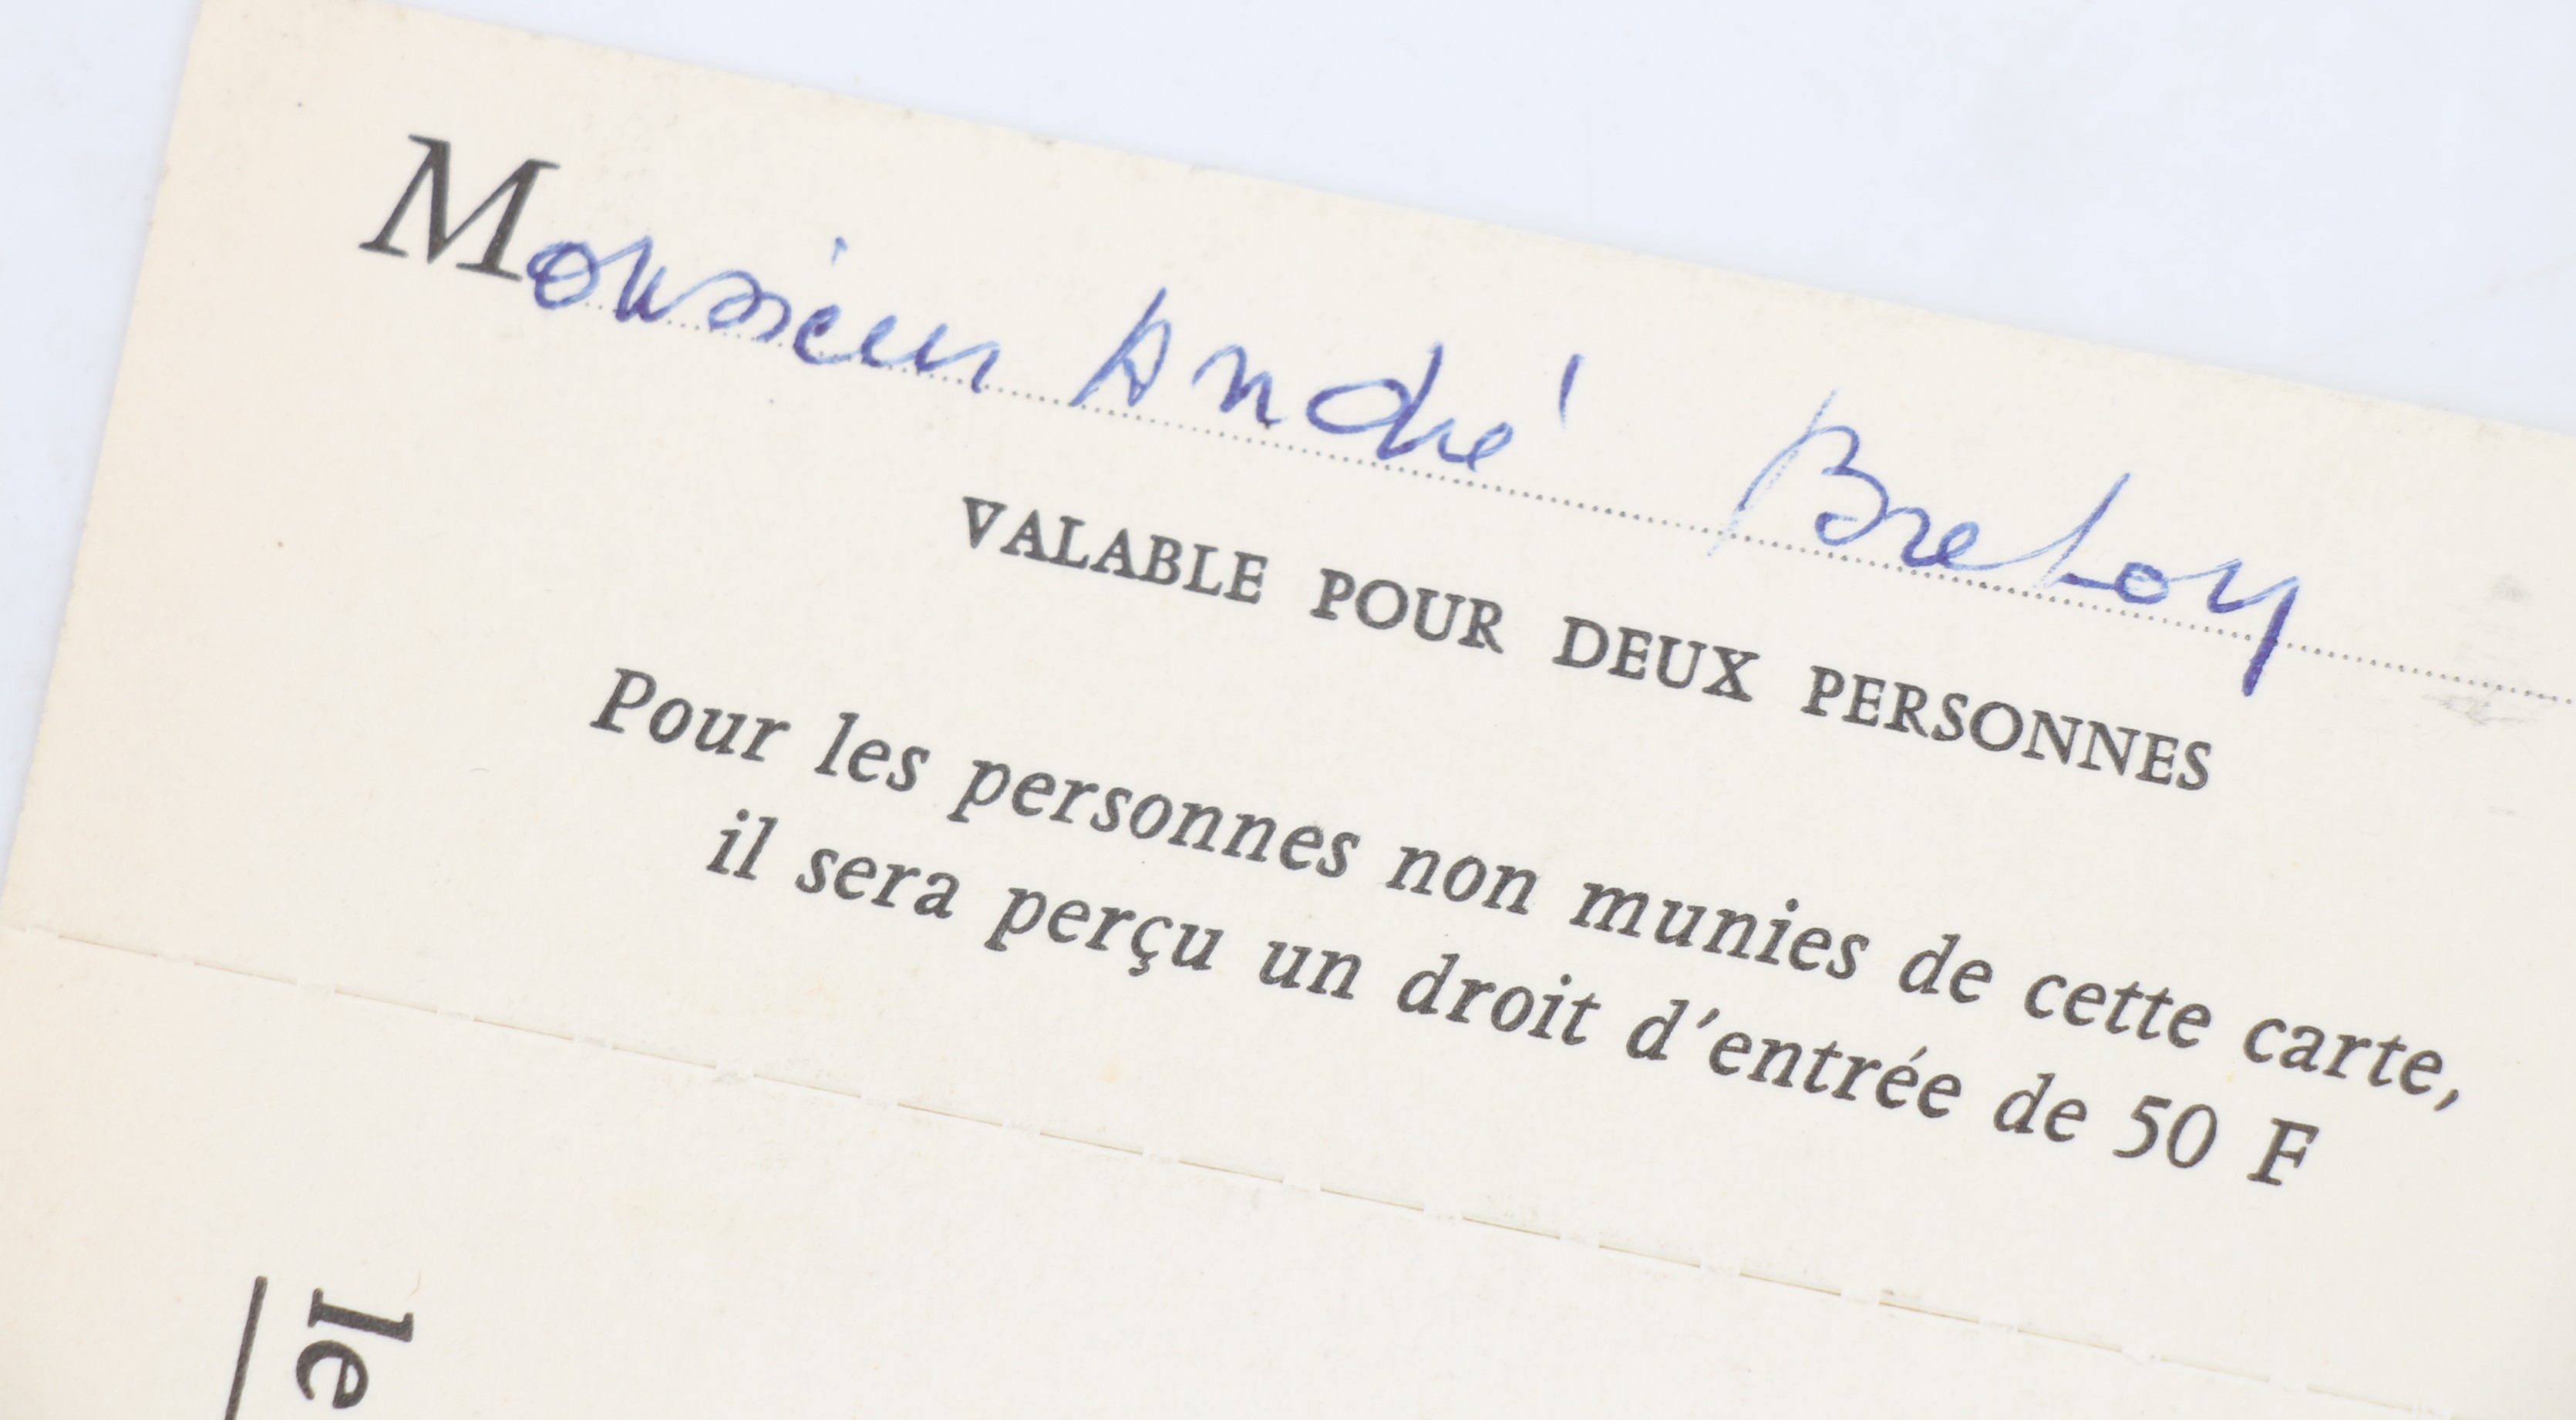 Monsieur André Breton
VALABLE POUR DEUX PERSONNES
Pour les personnes non munies de cette carte,
il sera perçu un droit d'entrée de 50 F
le